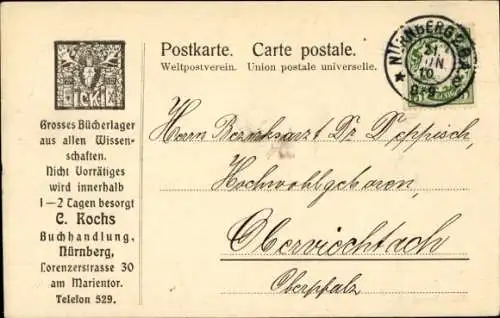 Postkarte. Carte postale.
Weltpostverein. Union postale universelle.
NÜRNBERG 2 B.P.
21
JUN
10
8-9
Grosses Bücherlager
aus allen Wissen-
schaften.
Nicht Vorrätiges
wird innerhalb
1—2 Tagen besorgt
C. Kochs
Buchhandlung,
Nürnberg,
Lorenzerstrasse 30
am Marientor.
Telefon 529.
Herrn Bezirksarzt Dr. Deppisch,
Hochwohlgeboren,
Oberviechtach
Oberpfalz